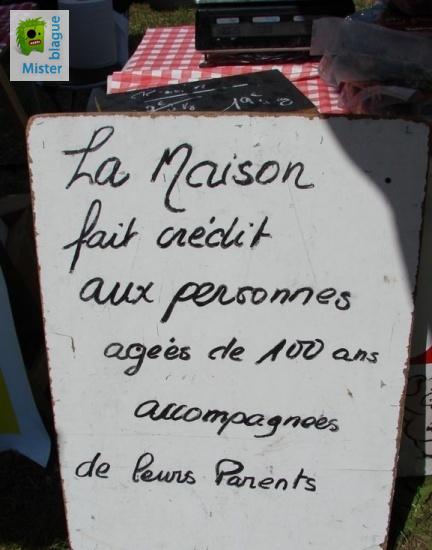 Mister
blague
La Maison
fait crédit
aux personnes
ageés de 100 ans
accompagnées
de leurs Parents